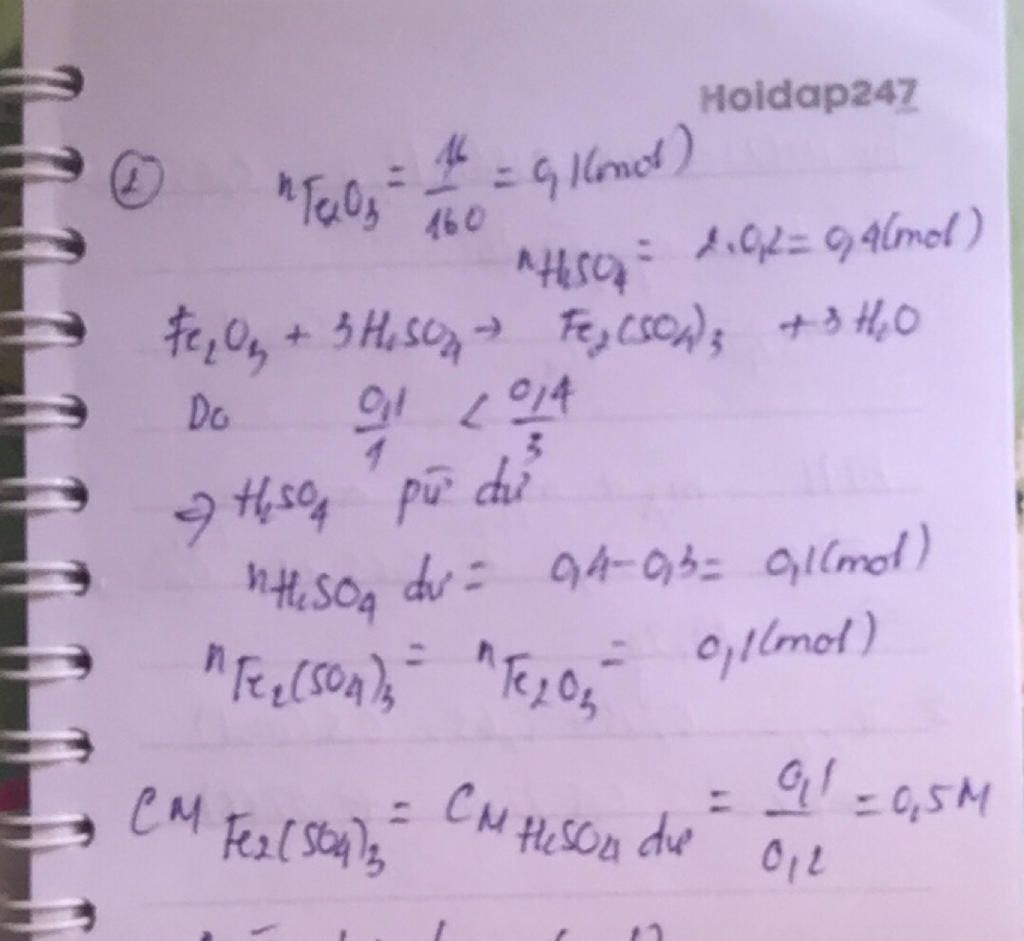 Hoidap247
① nFe2O3 = 16/160 = 0,1(mol)
nH2SO4 = 2.0,2 = 0,4(mol)
Fe2O3 + 3H2SO4 → Fe2(SO4)3 + 3H2O
Do 0,1/1 < 0,4/3
⇒ H2SO4 pứ dư
nH2SO4 dư = 0,4-0,3= 0,1(mol)
nFe2(SO4)3 = nFe2O3 = 0,1(mol)
CM Fe2(SO4)3 = CM H2SO4 dư = 0,1/0,2 = 0,5M